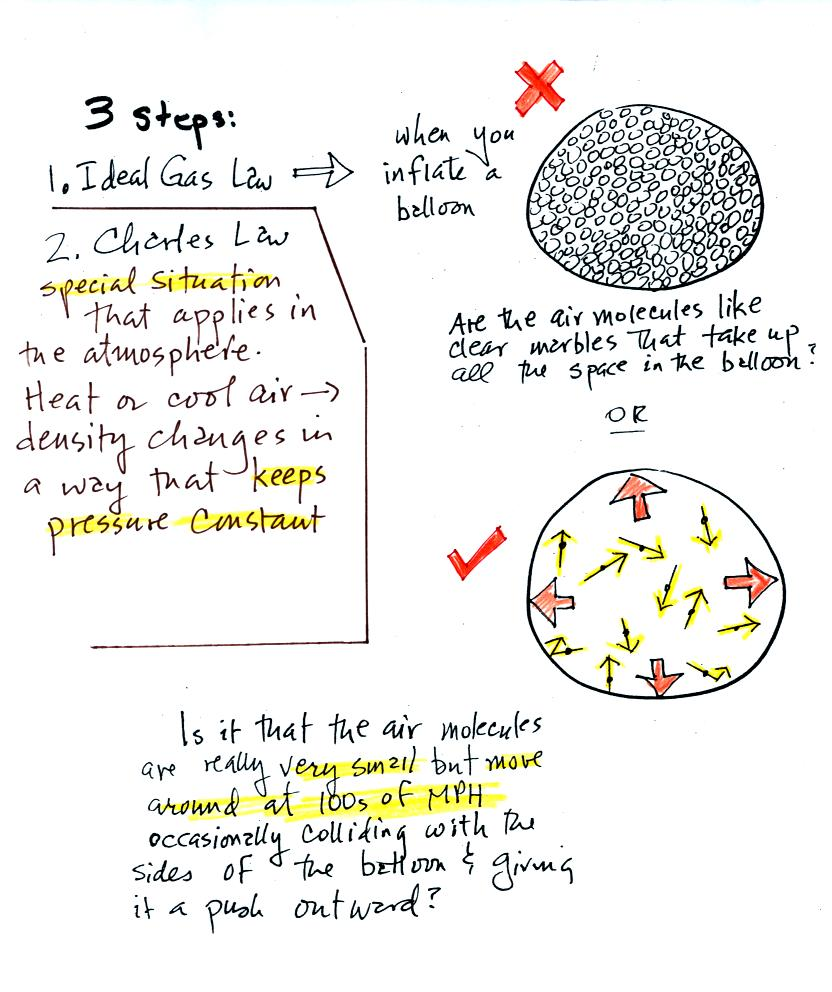 3 steps:
1. Ideal Gas Law
2. Charles Law
special situation
that applies in
the atmosphere.
Heat or cool air →
density changes in
a way that keeps
pressure constant
when you
inflate a
balloon
Are the air molecules like
clear marbles that take up
all the space in the balloon?
OR
Is it that the air molecules
are really very small but move
around at 100s of MPH
occasionally colliding with the
sides of the balloon & giving
it a push outward?